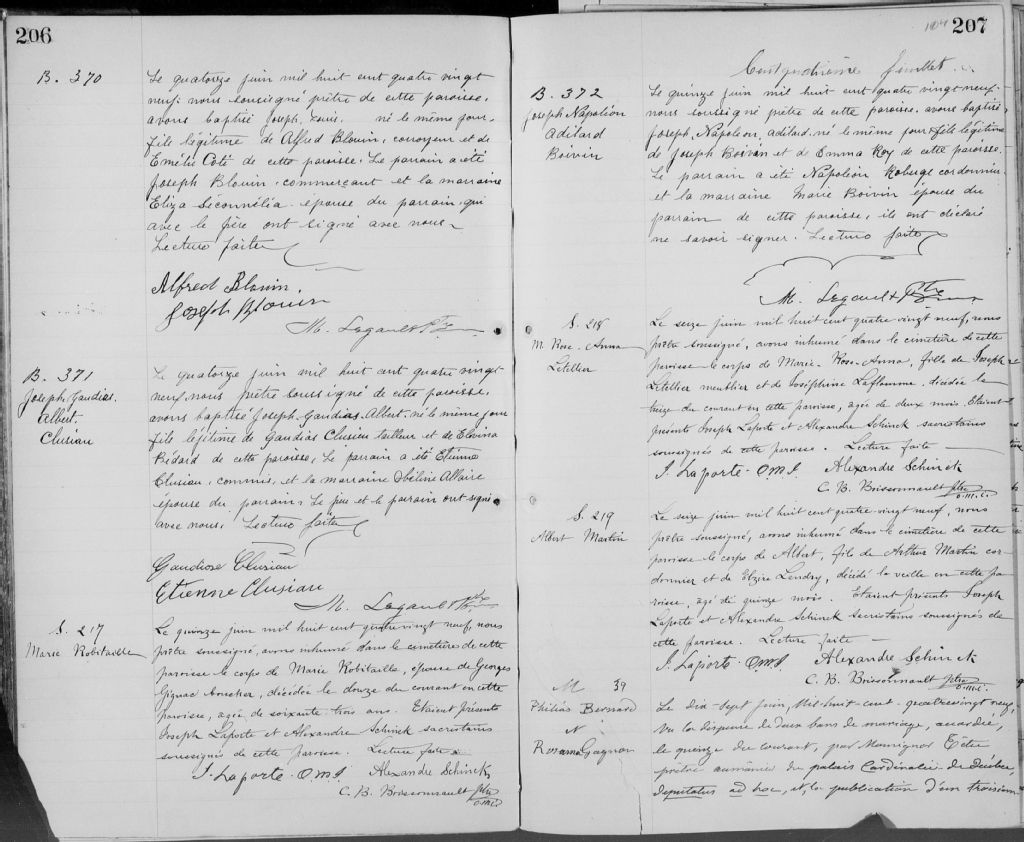 206
B. 370
Le quatorze juin mil huit cent quatre vingt
neuf. nous soussigné prêtre de cette paroisse.
avons baptisé Joseph, Louis. né le même jour.
fils légitime de Alfred Blouin, corroyeur et de
Emélie Coté de cette paroisse. Le parrain a été
Joseph Blouin. commerçant et la marraine
Eliza épouse du parrain. qui
avec le père ont signé avec nous.
Lecture faite
Alfred Blouin.
Joseph Blouin
M. Legault Ptre
B. 371
Joseph. Gaudias.
Albert.
Clusiau
Le quatorze juin mil huit cent quatre vingt
neuf. nous prêtre soussigné de cette paroisse.
avons baptisé Joseph. Gaudias. Albert. né le même jour
fils légitime de Gaudias Clusiau tailleur et de Elvina
Bédard de cette paroisse. Le parrain a été Etienne
Clusiau. commis. et la marraine Obéline Allaire
épouse du parrain. Le père et le parrain ont signé
avec nous. Lecture faite
Gaudiose Clusiau
Etienne Clusiau
M. Legault Ptre
S. 217
Marie Robitaille
Le quinze juin mil huit cent quatre vingt neuf, nous
prêtre soussigné, avons inhumé dans le cimetière de cette
paroisse le corps de Marie Robitaille, épouse de Georges
Gignac boucher, décédée le douze du courant en cette
paroisse, agée de soixante-trois ans. Etaient présents
Joseph Laporte et Alexandre Schinck sacristains
soussignés de cette paroisse. Lecture faite
J. Laporte. O.M.I. Alexandre Schinck
C. B. Brissonnault ptre
O.M.I.
207
Cent quatrième feuillet
B. 372
Joseph Napoléon
Adilard
Boivin
Le quinze juin mil huit cent quatre vingt neuf.
nous soussigné prêtre de cette paroisse. avons baptisé
Joseph, Napoléon, adilard. né le même jour fils légitime
de Joseph Boivin et de Emma Roy de cette paroisse.
Le parrain a été Napoléon Roberge cordonnier.
et la marraine Marie Boivin épouse du
parrain de cette paroisse. ils ont déclaré
ne savoir signer. Lecture faite
M. Legault Ptre
S. 218
M. Rose-Anna
Létellier
Le seize juin mil huit cent quatre vingt neuf, nous
prêtre soussigné, avons inhumé dans le cimetière de cette
paroisse le corps de Marie-Rose-Anna, fille de Joseph
Létellier meublier et de Joséphine Laflamme. décédée le
treize du courant en cette paroisse, agée de deux mois. Etaient
présents Joseph Laporte et Alexandre Schinck sacristains
soussignés de cette paroisse. Lecture faite
J. Laporte. O.M.I. Alexandre Schinck
C. B. Brissonnault ptre
O.M.I.
S. 219
Albert Martin
Le seize juin mil huit cent quatre vingt neuf, nous
prêtre soussigné, avons inhumé dans le cimetière de cette
paroisse le corps de Albert, fils de Arthur Martin cor-
donnier et de Elzire Landry, décédé la veille en cette pa
roisse, agé de quinze mois. Etaient présents Joseph
Laporte et Alexandre Schinck sacristains soussignés de
cette paroisse. Lecture faite
J. Laporte. O.M.I. Alexandre Schinck
C. B. Brissonnault ptre
O.M.I.
M 39
Philias Bernard
et
Rosanna Gagnon
Le dix sept juin, mil-huit-cent-quatre vingt neuf,
vu la dispense de deux bans de mariage, accordée,
le quinze du courant, par Monsignor Têtu
prêtre aumônier du palais Cardinalice de Québec,
deputatus ad hoc, et, la publication d'un troisième